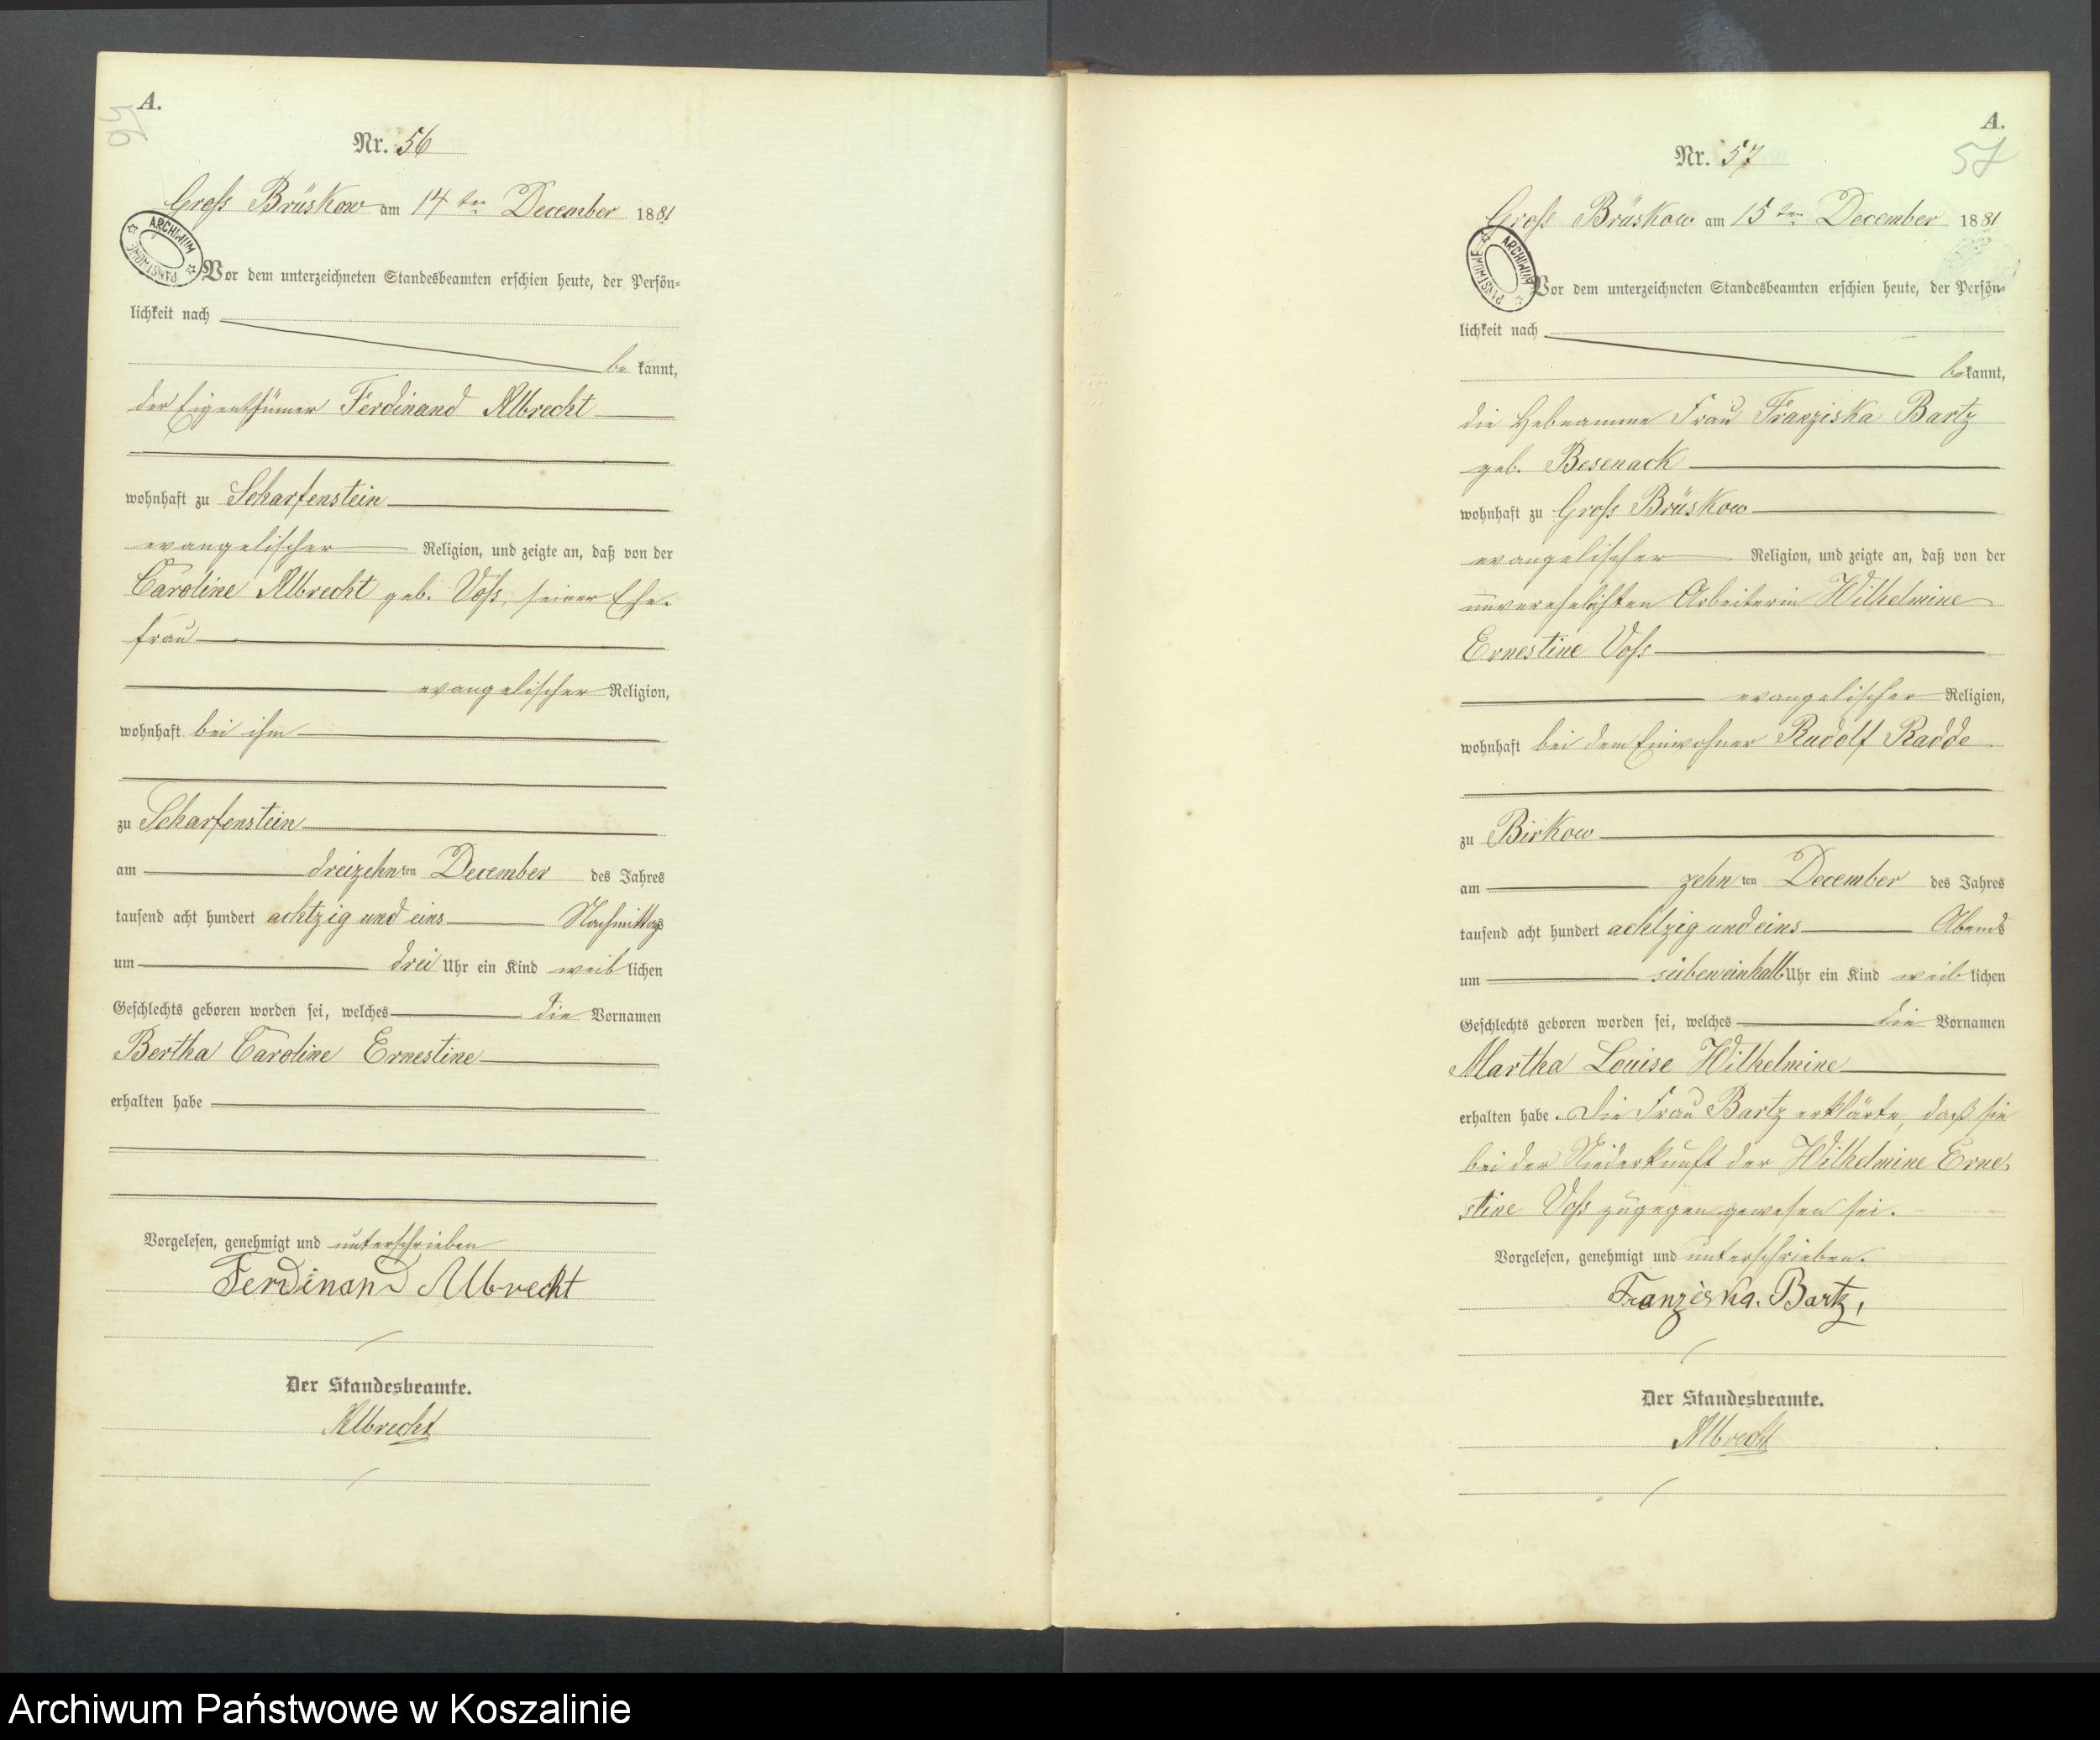 A.
56
Nr. 56
Groß Brüskow am 14ten December 1881
ARCHIWUM PAŃSTWOWE
Vor dem unterzeichneten Standesbeamten erschien heute, der Persön-
lichkeit nach
bekannt,
der Eigenthümer Ferdinand Albrecht
wohnhaft zu Scharfenstein
evangelischer Religion, und zeigte an, daß von der
Caroline Albrecht geb. Voß, seiner Ehe-
frau
evangelischer Religion,
wohnhaft bei ihm
zu Scharfenstein
am dreizehnten December des Jahres
tausend acht hundert achtzig und eins Nachmittags
um drei Uhr ein Kind weiblichen
Geschlechts geboren worden sei, welches die Vornamen
Bertha Caroline Ernestine
erhalten habe
Vorgelesen, genehmigt und unterschrieben
Ferdinand Albrecht
Der Standesbeamte.
Albrecht
A.
57
Nr. 57
Groß Brüskow am 15ten December 1881
ARCHIWUM PAŃSTWOWE
Vor dem unterzeichneten Standesbeamten erschien heute, der Persön-
lichkeit nach
bekannt,
die Hebeamme Frau Franziska Bartz
geb. Besenack
wohnhaft zu Groß Brüskow
evangelischer Religion, und zeigte an, daß von der
unverehelichten Arbeiterin Wilhelmine
Ernestine Voß
evangelischer Religion,
wohnhaft bei dem Einwohner Rudolf Radde
zu Birkow
am zehnten December des Jahres
tausend acht hundert achtzig und eins Abends
um sieben einhalb Uhr ein Kind weiblichen
Geschlechts geboren worden sei, welches die Vornamen
Martha Louise Wilhelmine
erhalten habe. Die Frau Bartz erklärte, daß sie
bei der Niederkunft der Wilhelmine Erne-
stine Voß zugegen gewesen sei.
Vorgelesen, genehmigt und unterschrieben.
Franziska. Bartz,
Der Standesbeamte.
Albrecht
Archiwum Państwowe w Koszalinie